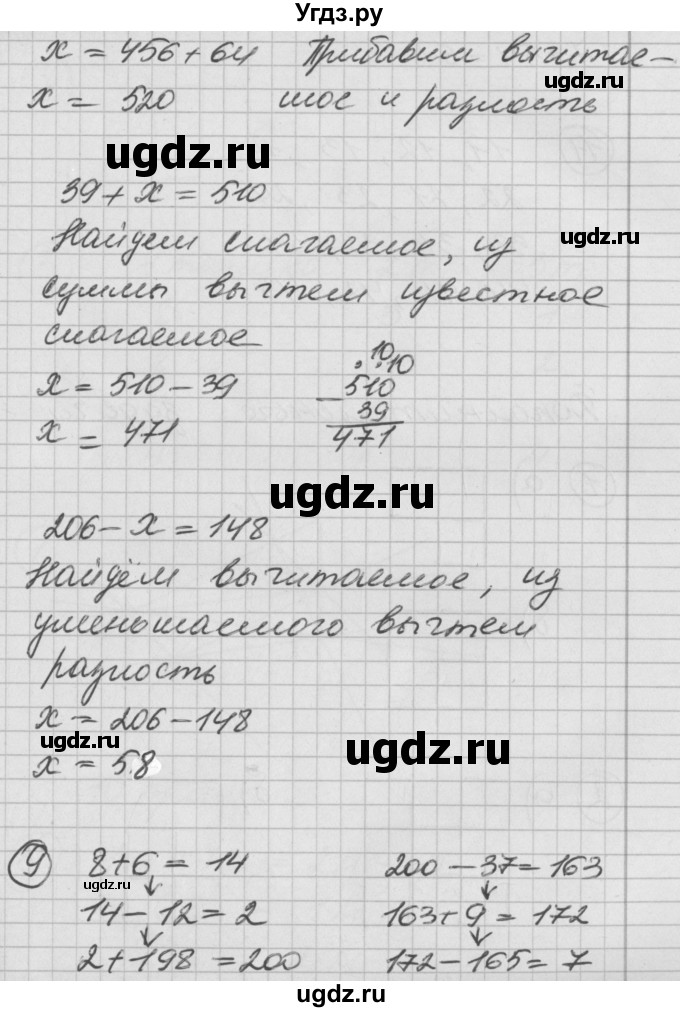 Угдз.ру
x = 456+64 Прибавим вычитае-
ugdz.ru
x = 520 мое и разность
ugdz.ru
39 + x = 510
ugdz.ru
Найдем слагаемое, из
суммы вычтем известное
слагаемое
10 10
x = 510 - 39
x = 471
- 510
39
471
ugdz.ru
206 - x = 148
Найдём вычитаемое, из
уменьшаемого вычтем
разность
x = 206 - 148
ugdz.ru
ugdz.ru
x = 58
9 8+6 = 14 200 - 37 = 163
ugdz.ru
14 - 12 = 2 163 + 9 = 172
2 + 198 = 200 172 - 165 = 7
ugdz.ru